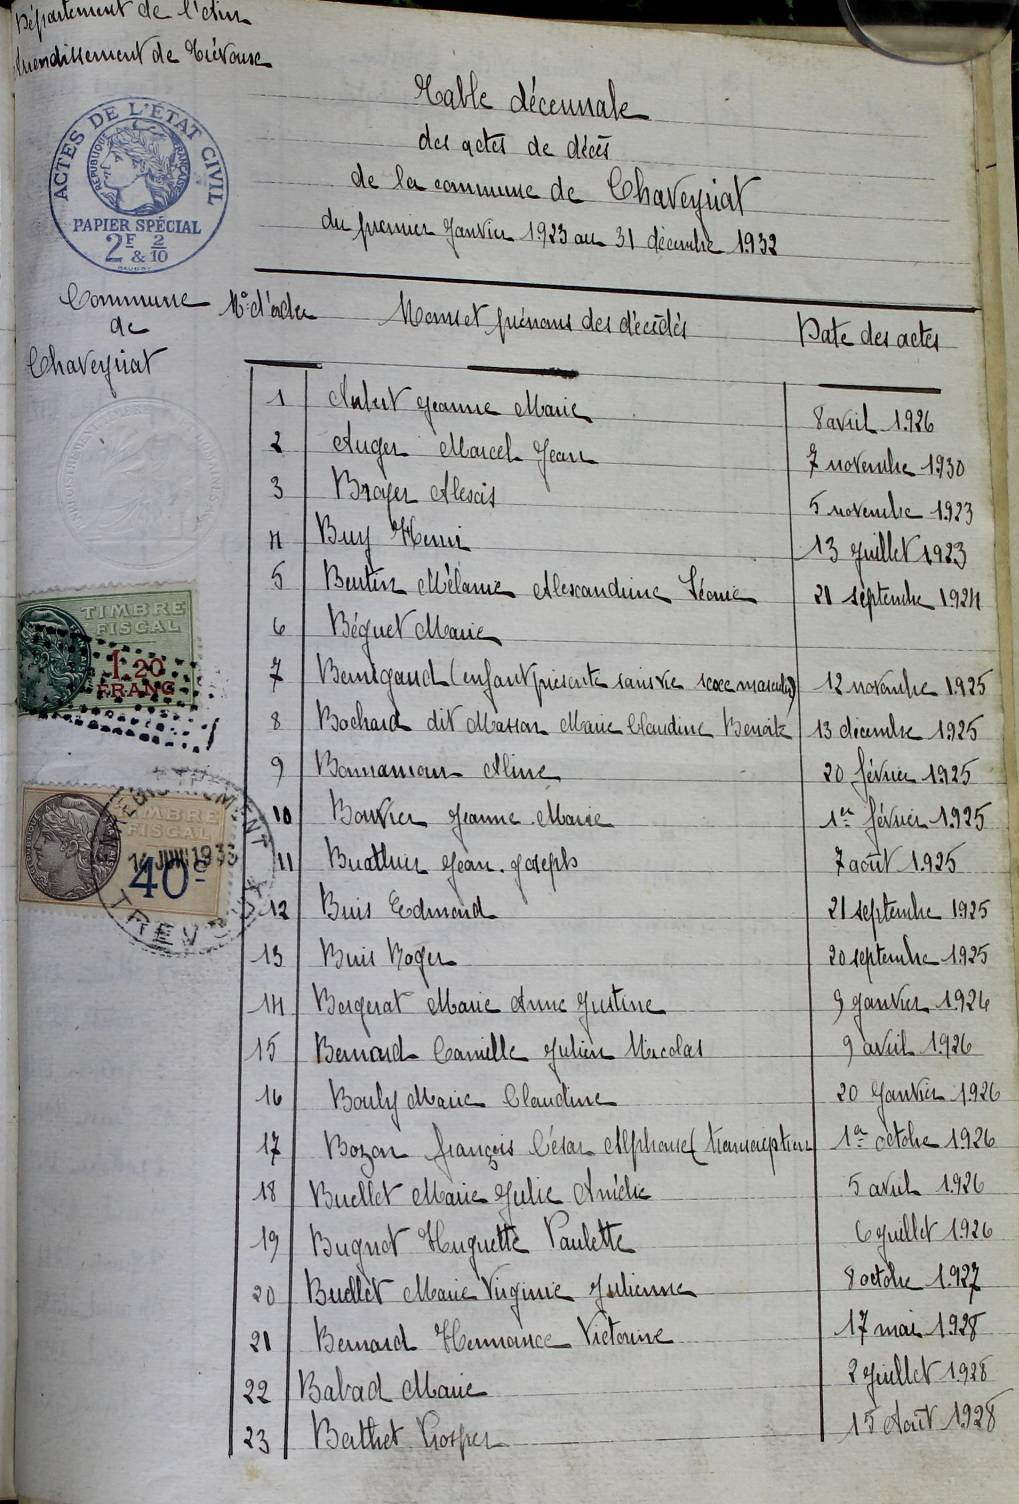 Département de l'Ain
Arrondissement de Trévoux
Table décennale
des actes de décès
de la commune de Chaveyriat
du premier Janvier 1923 au 31 décembre 1932
ACTES DE L'ÉTAT CIVIL
RÉPUBLIQUE FRANÇAISE
PAPIER SPÉCIAL
2F & 2/10
Commune
de
Chaveyriat
No d'ordre Noms et prénoms des décédés Date des actes
1 Jeanne Marie 8 avril 1926
2 Auger Marcel Jean 7 novembre 1930
3 Broyer Alexis 5 novembre 1923
4 Buy Henri 13 Juillet 1923
5 Bertin Mélanie Alexandrine Léonie 21 septembre 1924
6 Béguet Marie
7 Bernigaud (enfant présenté sans vie sexe masculin) 12 novembre 1925
8 Bochard dit Masson Marie Claudine Benoite 13 décembre 1925
9 Bonnamour Aline 20 février 1925
10 Bouvier Jeanne Marie 1er février 1925
11 Buathier Jean Joseph 7 août 1925
12 Buis Edmond 21 septembre 1925
13 Buis Roger 20 septembre 1925
14 Bergerat Marie Anne Justine 9 Janvier 1926
15 Bernard Camille Julien Nicolas 9 avril 1926
16 Bouly Marie Claudine 20 Janvier 1926
17 Bozon François César Alphonse (transcription 1er octobre 1926
18 Buellet Marie Julie Amélie 5 avril 1926
19 Bugnot Huguette Paulette 6 juillet 1926
20 Buellet Marie Virginie Julienne 8 octobre 1927
21 Bernard Hermance Victorine 17 mai 1928
22 Babad Marie 2 Juillet 1928
23 Berthet Prosper 15 Août 1928
TIMBRE
FISCAL
1.20
FRANC
TIMBRE
FISCAL
40c
ENREGISTREMENT
JUIN 1933
TREVOUX